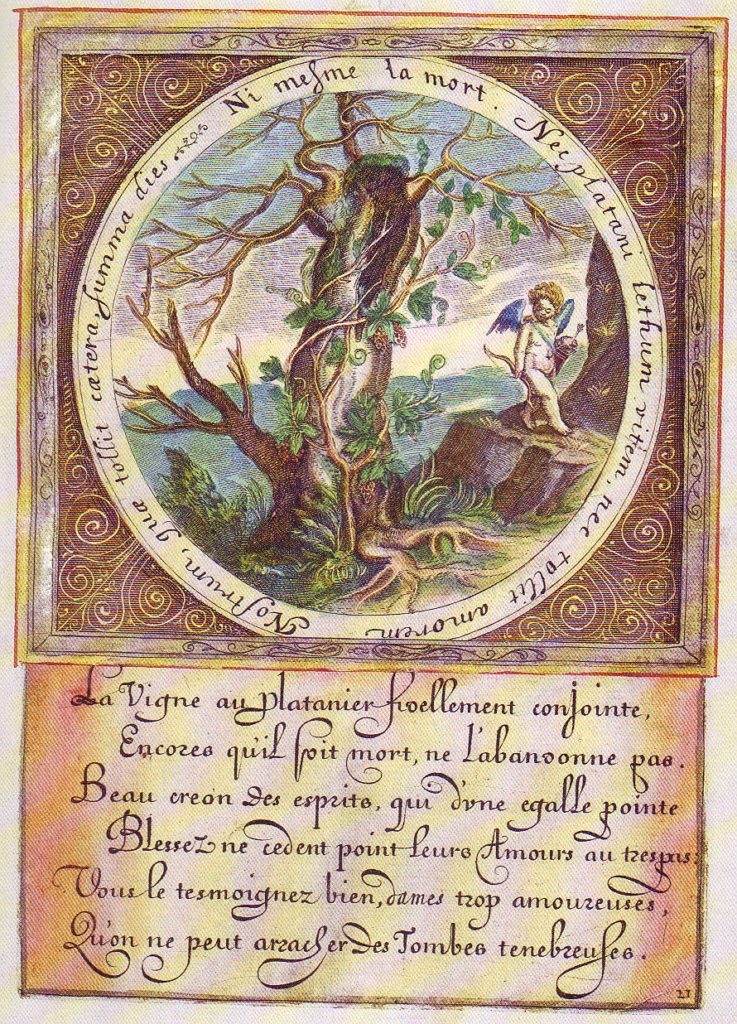 Ni meſme la mort.
Nec platani lethum vitem, nec tollit amorem
Noſtrum, quæ tollit cætera, ſumma dies
La Vigne au Platanier fidellement conjointe,
Encores qu'il ſoit mort, ne l'abandonne pas.
Beau creon des esprits, qui d'vne egalle pointe
Blessez ne cedent point leurs Amours au trespas:
Vous le tesmoignez bien, dames trop amoureuses,
Qu'on ne peut arracher des Tombes tenebreuſes.
21